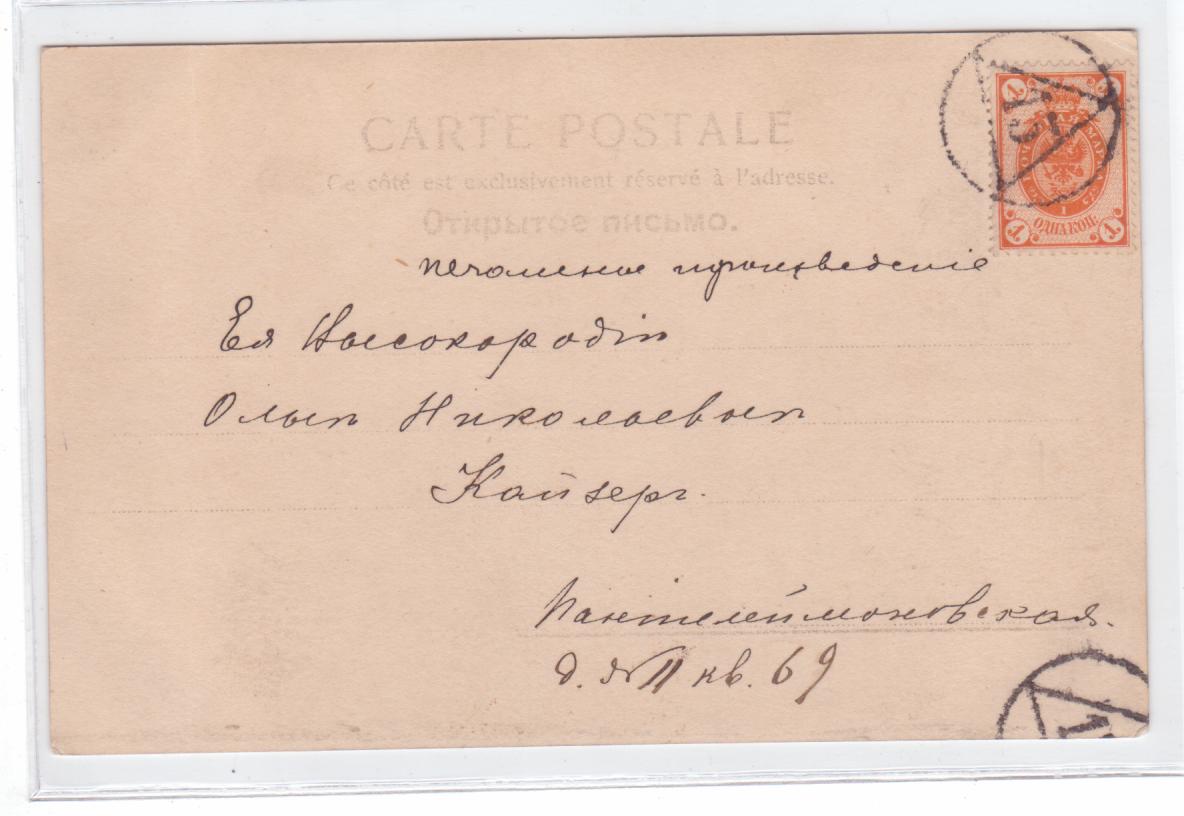 CARTE POSTALE
Ce côté est exclusivement réservé à l'adresse.
Открытое письмо.
печатное произведенiе
Ея Высокородiю
Ольгѣ Николаевнѣ
Кайзеръ.
Пантелеймоновская.
д. № 11 кв. 69
1 1
ОДНА КОП.
1 1
15